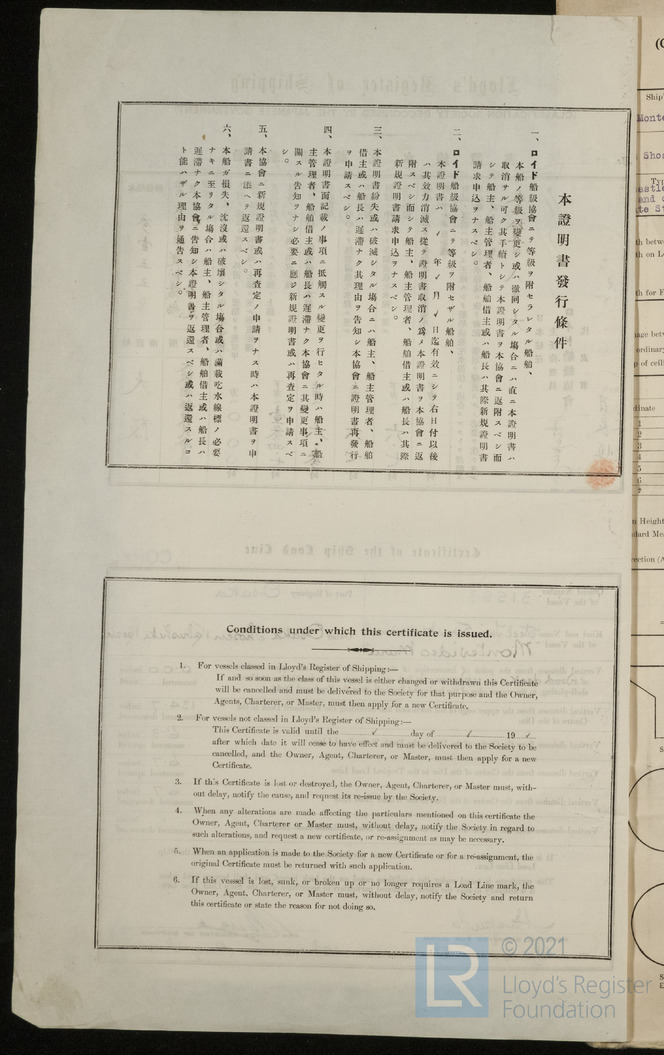 本證明書發行條件
一、ロイド船級協會ニテ等級ヲ附セラレタル船舶、
本船ノ等級ヲ變更シ或ハ撤囘シタル塲合ニハ直ニ本證明書ハ
取消サル可ク其手續トシテ本證明書ヲ本協會ニ返附スベシ而
シテ船主、船主管理者、船舶借主或ハ船長ハ其際新規證明書
請求申込ヲナスベシ。
二、ロイド船級協會ニテ等級ヲ附セザル船舶、
本證明書ハ ✓ 年 ✓ 月 ✓ 日迄有效ニシテ右日付以後
ハ其效力消滅ス從テ證明書取消ノ爲メ本證明書ヲ本協會ニ返
附スベシ而シテ船主、船主管理者、船舶借主或ハ船長ハ其際
新規證明書請求申込ヲナスベシ。
三、本證明書紛失或ハ破滅シタル塲合ニハ船主、船主管理者、船舶
借主或ハ船長ハ遲滯ナク其理由ヲ告知シ本協會ニ證明書再發行
ヲ申請スベシ。
四、本證明書面記載ノ事項ニ抵觸スル變更ヲ行ヒタル時ハ船主、船
主管理者、船舶借主或ハ船長ハ遲滯ナク本協會ニ其變更事項ニ
關スル告知ヲナシ必要ニ應ジ新規證明書或ハ再査定ヲ申請スベ
シ。
五、本協會ニ新規證明書或ハ再査定ノ申請ヲナス時ハ本證明書ヲ申
請書ニ添ヘテ返還スベシ。
六、本船ガ損失、沈沒或ハ破壞シタル塲合或ハ滿載吃水線標ノ必要
ナキニ至リタル塲合ハ船主、船主管理者、船舶借主或ハ船長ハ
遲滯ナク本協會ニ告知シ本證明書ヲ返還スベシ或ハ返還スルコ
ト能ハザル理由ヲ通告スベシ。
Conditions under which this certificate is issued.
1. For vessels classed in Lloyd's Register of Shipping:—
If and so soon as the class of this vessel is either changed or withdrawn this Certificate
will be cancelled and must be delivered to the Society for that purpose and the Owner,
Agents, Charterer, or Master, must then apply for a new Certificate.
2. For vessels not classed in Lloyd's Register of Shipping:—
This Certificate is valid until the ✓ day of ✓ 19 ✓
after which date it will cease to have effect and must be delivered to the Society to be
cancelled, and the Owner, Agent, Charterer, or Master, must then apply for a new
Certificate.
3. If this Certificate is lost or destroyed, the Owner, Agent, Charterer, or Master must, with-
out delay, notify the cause, and request its re-issue by the Society.
4. When any alterations are made affecting the particulars mentioned on this certificate the
Owner, Agent, Charterer or Master must, without delay, notify the Society in regard to
such alterations, and request a new certificate, or re-assignment as may be necessary.
5. When an application is made to the Society for a new Certificate or for a re-assignment, the
original Certificate must be returned with such application.
6. If this vessel is lost, sunk, or broken up or no longer requires a Load Line mark, the
Owner, Agent, Charterer or Master must, without delay, notify the Society and return
this certificate or state the reason for not doing so.
LR
© 2021
Lloyd's Register
Foundation